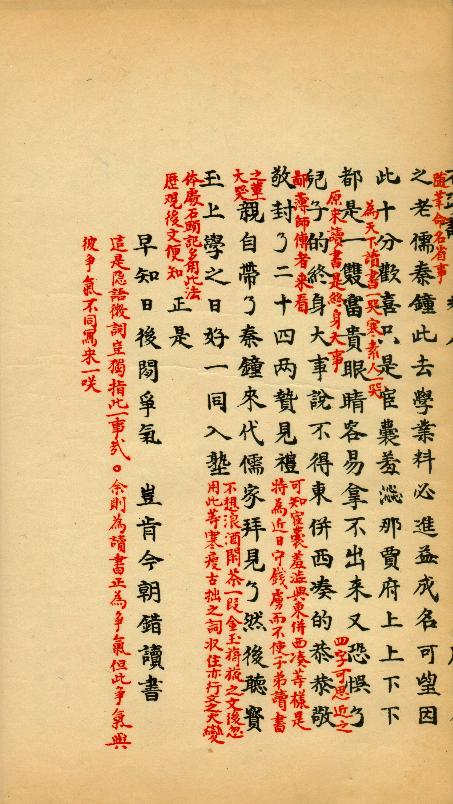 隨筆命名省事
之老儒秦鐘此去學業料必進益成名可望因
此十分歡喜只是宦囊羞澁那賈府上上下下
為天下讀書人一哭寒素人一哭
都是一雙富貴眼睛容易拿不出來又恐悞了
原來讀書是終身大事
四字可思近之
兒子的終身大事說不得東併西湊的恭恭敬
鄙薄師傅者來看
敬封了二十四兩贄見禮
可知宦囊羞澁與東併西湊等樣是
將為近日守錢虜而不使子弟讀書
之輩一大哭
親自帶了秦鐘來代儒家拜見了然後聽寶
不想浪酒閑茶一段金玉旖旎之文後忽
用此等寒瘦古拙之詞收住亦行文之大變
玉上學之日好一同入塾
體處石頭記多用此法
歷觀後文便知
正是
早知日後閗爭氣 豈肯今朝錯讀書
這是隱語微詞豈獨指此一事哉。余則為讀書正為爭氣但此爭氣與
彼爭氣不同寫來一咲